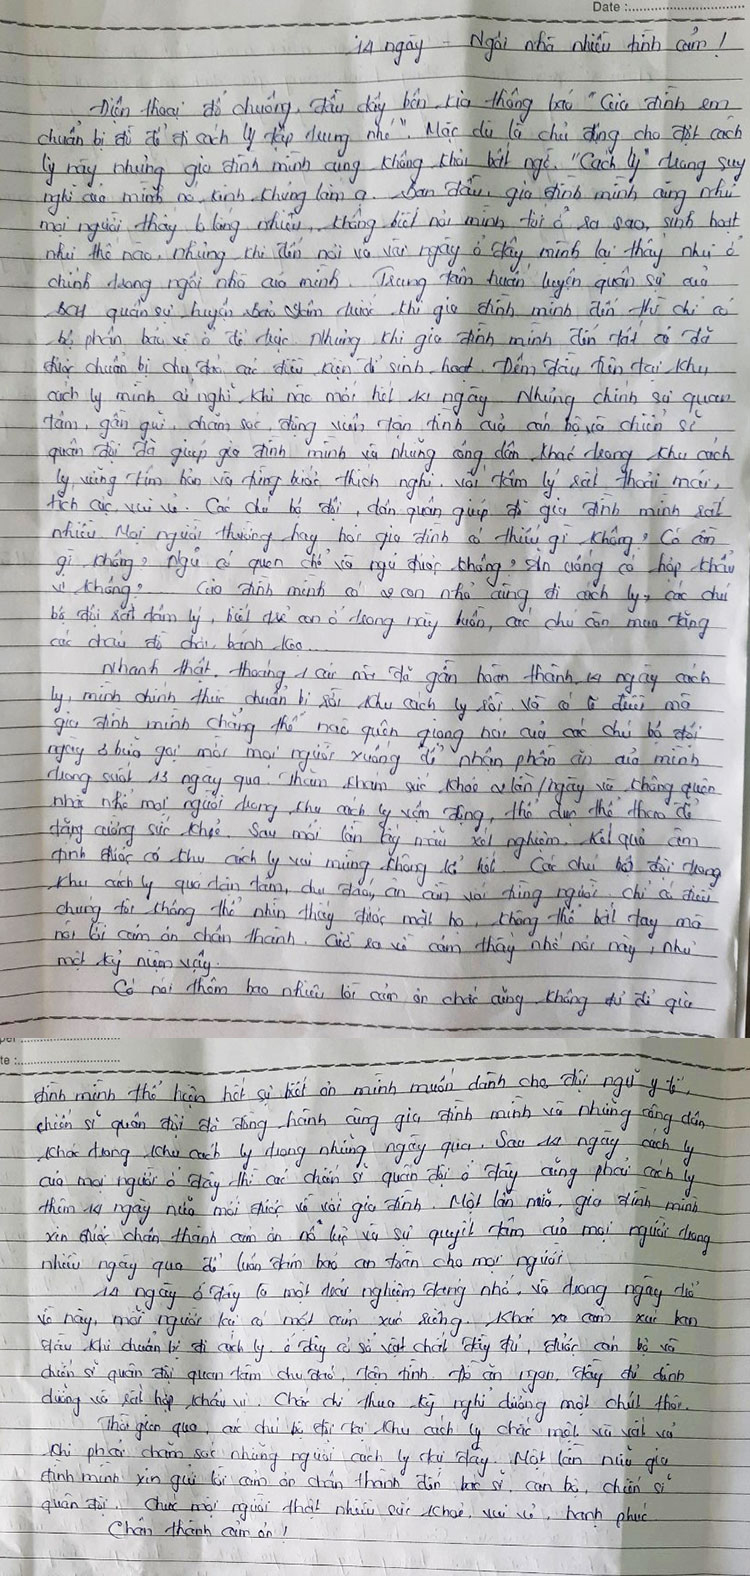 Date :
14 ngày – Ngôi nhà nhiều tình cảm!
Điện thoại đổ chuông, đầu dây bên kia thông báo "Gia đình em
chuẩn bị đồ để đi cách ly tập trung nhé". Mặc dù là chủ động cho đợt cách
ly này nhưng gia đình mình cũng không khỏi bất ngờ. "Cách ly" trong suy
nghĩ của mình nó kinh khủng lắm ạ. Ban đầu, gia đình mình cũng như
mọi người thấy lo lắng nhiều, không biết nơi mình tới ở ra sao, sinh hoạt
như thế nào, nhưng khi đến nơi và vài ngày ở đây mình lại thấy như ở
chính trong ngôi nhà của mình. Trung tâm huấn luyện quân sự của
BCH quân sự huyện Bảo Lâm trước khi gia đình mình đến thì chỉ có
bộ phận bảo vệ ở để trực. Nhưng khi gia đình mình đến tất cả đã
được chuẩn bị chu đáo các điều kiện để sinh hoạt. Đêm đầu tiên tại khu
cách ly mình cứ nghĩ khi nào mới hết 14 ngày. Nhưng chính sự quan
tâm, gần gũi, chăm sóc, động viên tận tình của cán bộ và chiến sĩ
quân đội đã giúp gia đình mình và những công dân khác trong khu cách
ly, vững tâm hơn và từng bước thích nghi với tâm lý rất thoải mái,
tích cực, vui vẻ. Các chú bộ đội, dân quân giúp đỡ gia đình mình rất
nhiều. Mọi người thường hay hỏi gia đình có thiếu gì không? Có cần
gì không? Ngủ có quen chỗ và ngủ được không? Ăn uống có hợp khẩu
vị không? Gia đình mình có 2 con nhỏ cùng đi cách ly, các chú
bộ đội rất tâm lý, biết trẻ con ở trong này buồn, các chú còn mua tặng
các cháu đồ chơi, bánh kẹo...
Nhanh thật, thoáng 1 cái nữa đã gần hoàn thành 14 ngày cách
ly, mình chính thức chuẩn bị rời khu cách ly rồi. Và có lẽ điều mà
gia đình mình chẳng thể nào quên giọng nói của các chú bộ đội
ngày 3 bữa gọi mời mọi người xuống để nhận phần ăn của mình
trong suốt 13 ngày qua. Thăm khám sức khoẻ 2 lần/ngày và không quên
nhắc nhở mọi người trong khu cách ly vận động, thể dục thể thao để
tăng cường sức khoẻ. Sau mỗi lần lấy mẫu xét nghiệm. Kết quả âm
tính được cả khu cách ly vui mừng không tả hết. Các chú bộ đội trong
khu cách ly quá tận tâm, chu đáo, ân cần với từng người. chỉ có điều
chúng tôi không thể nhìn thấy được mặt họ, không thể bắt tay mà
nói lời cảm ơn chân thành. Giờ ra về cảm thấy nhớ nơi này, như
một kỷ niệm vậy.
Có nói thêm bao nhiêu lời cảm ơn chắc cũng không đủ để gia
đình mình thể hiện hết sự biết ơn mình muốn dành cho đội ngũ y tế,
chiến sĩ quân đội đã đồng hành cùng gia đình mình và những công dân
khác trong khu cách ly trong những ngày qua. Sau 14 ngày cách ly
của mọi người ở đây thì các chiến sĩ quân đội ở đây cũng phải cách ly
thêm 14 ngày nữa mới được về với gia đình. Một lần nữa, gia đình mình
xin được chân thành cảm ơn nỗ lực và sự quyết tâm của mọi người trong
nhiều ngày qua để luôn đảm bảo an toàn cho mọi người.
14 ngày ở đây là một trải nghiệm đáng nhớ, và trong ngày trở
về này, mỗi người lại có một cảm xúc riêng. Khác xa cảm xúc ban
đầu khi chuẩn bị đi cách ly. ở đây cơ sở vật chất đầy đủ, được cán bộ và
chiến sĩ quân đội quan tâm chu đáo, tận tình. Đồ ăn ngon, đầy đủ dinh
dưỡng và rất hợp khẩu vị. Chắc chỉ thua kỳ nghỉ dưỡng một chút thôi.
Thời gian qua, các chú bộ đội tại khu cách ly chắc mệt và vất vả
khi phải chăm sóc những người cách ly tại đây. Một lần nữa gia
đình mình xin gửi lời cảm ơn chân thành đến bác sĩ, cán bộ, chiến sĩ
quân đội. Chúc mọi người thật nhiều sức khoẻ, vui vẻ, hạnh phúc.
Chân thành cảm ơn!